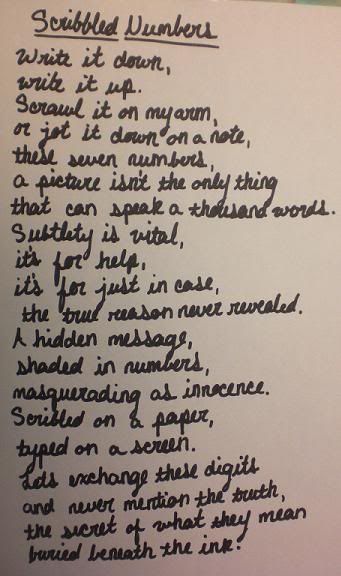 Scribbled Numbers
Write it down,
write it up.
Scrawl it on my arm,
or jot it down on a note,
these seven numbers,
a picture isn't the only thing
that can speak a thousand words.
Subtlety is vital,
it's for help,
it's for just in case,
the true reason never revealed.
A hidden message,
shaded in numbers,
masquerading as innocence.
Scribled on a paper,
typed on a screen.
Lets exchange these digits
and never mention the truth,
the secret of what they mean
buried beneath the ink.